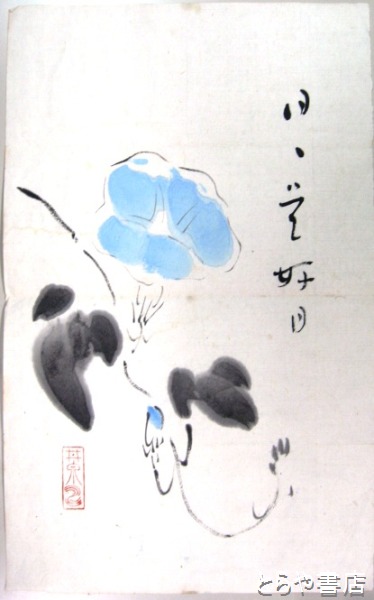 日々是好日
とらや書店